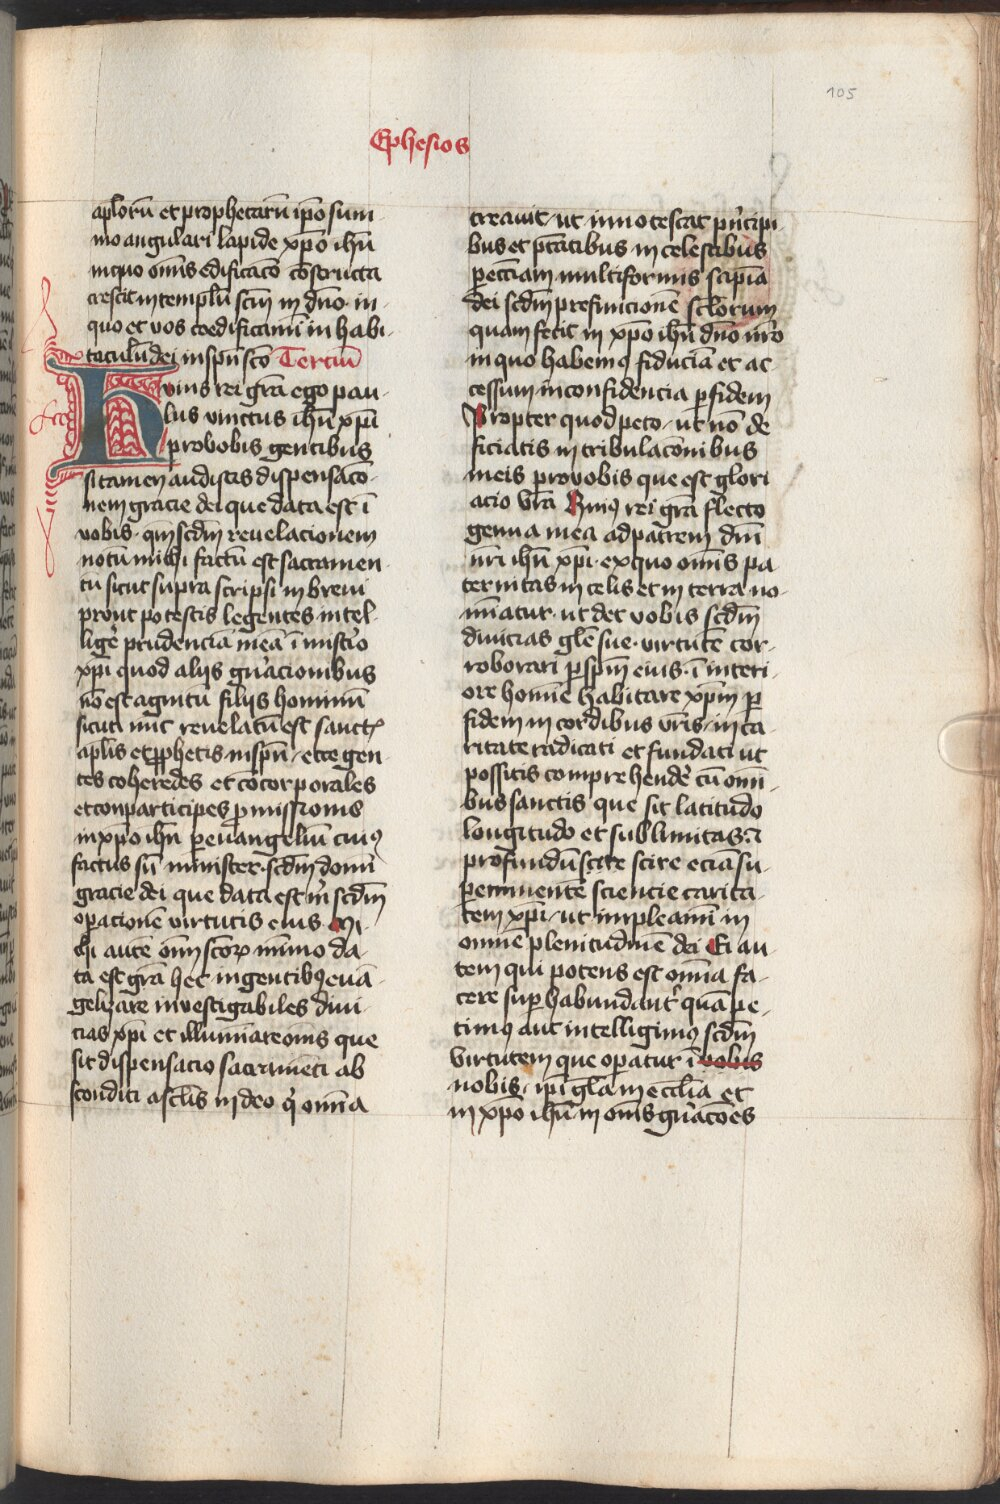 105
Ephesios
aplorū et prophetarū ipo sum
mo angulari lapide xpo ihū
in quo omīs edificacō cōstructa
crescit in templū scm in dno in
quo et vos coedificamī in habi
taculū dei in spū scō Terciū
Huius rei grā ego pau
lus vinctus ihū xpi
pro vobis gentibus
si tamen audistis dispensacō
nem gracie dei que data est ī
vobis · qm scdm reuelacionem
notū michi factū est sacramen
tū sicut supra scripsi in breui
prout potestis legentes intel
ligē prudenciā meā ī mistio
xpi quod alijs gnacionibus
nō est agnitū filijs hominū
sicuti nūc reuelatū est sanct
aplis et pphetis in spū · esse gen
tes coheredes et cōcorporales
et conparticipes pmissionis
in xpo ihū per euangeliū cuiꝰ
factus sū minister · scdm donū
gracie dei que data est m scdm
opacionē virtutis eius Mi
chi autē omī scoꝝ minimo da
ta est grā hec in gentibꝫ euā
gelizare inuestigabiles diui
cias xpi et illuminare omīs que
sit dispensacio sacramēti ab
sconditi a sclis in deo q omīa
creauit · ut innotescat pncipi
bus et ptātibus in celestibus
p eccīam multiformis sapīa
dei scdm prefinicionē sclorum
quam fecit in xpo ihū dno nro
in quo habemꝰ fiduciā et ac
cessum in confidencia p fidem
Propter quod peto · ut nō de
ficiatis in tribulacōnibus
meis pro vobis que est glori
acio vrā Huiꝰ rei grā flecto
genua mea ad patrem dnī
nri ihū xpi · ex quo omīs pa
ternitas in celis et in terra no
minatur · ut det vobis scdm
diuicias glē sue · virtutē cor
roborari p spm eius · ī interi
ore homīe habitare xpm p
fidem in cordibus vris · in ca
ritate radicati et fundati ut
possitis comprehendē cū omi
bus sanctis que sit latitudo
longitudo et sublimitas · ī
profundū scire eciā su
peminentē sciencie carita
tem xpi · ut impleamī in
omnē plenitudinē dei Ei au
tem qui potens est omīa fa
cere suphabundant quā pe
timꝰ aut intelligimꝰ scdm
virtutem que opatur ī vobis
nobis · ipi gla in ecclīa et
in xpo ihū in omīs gnacōes